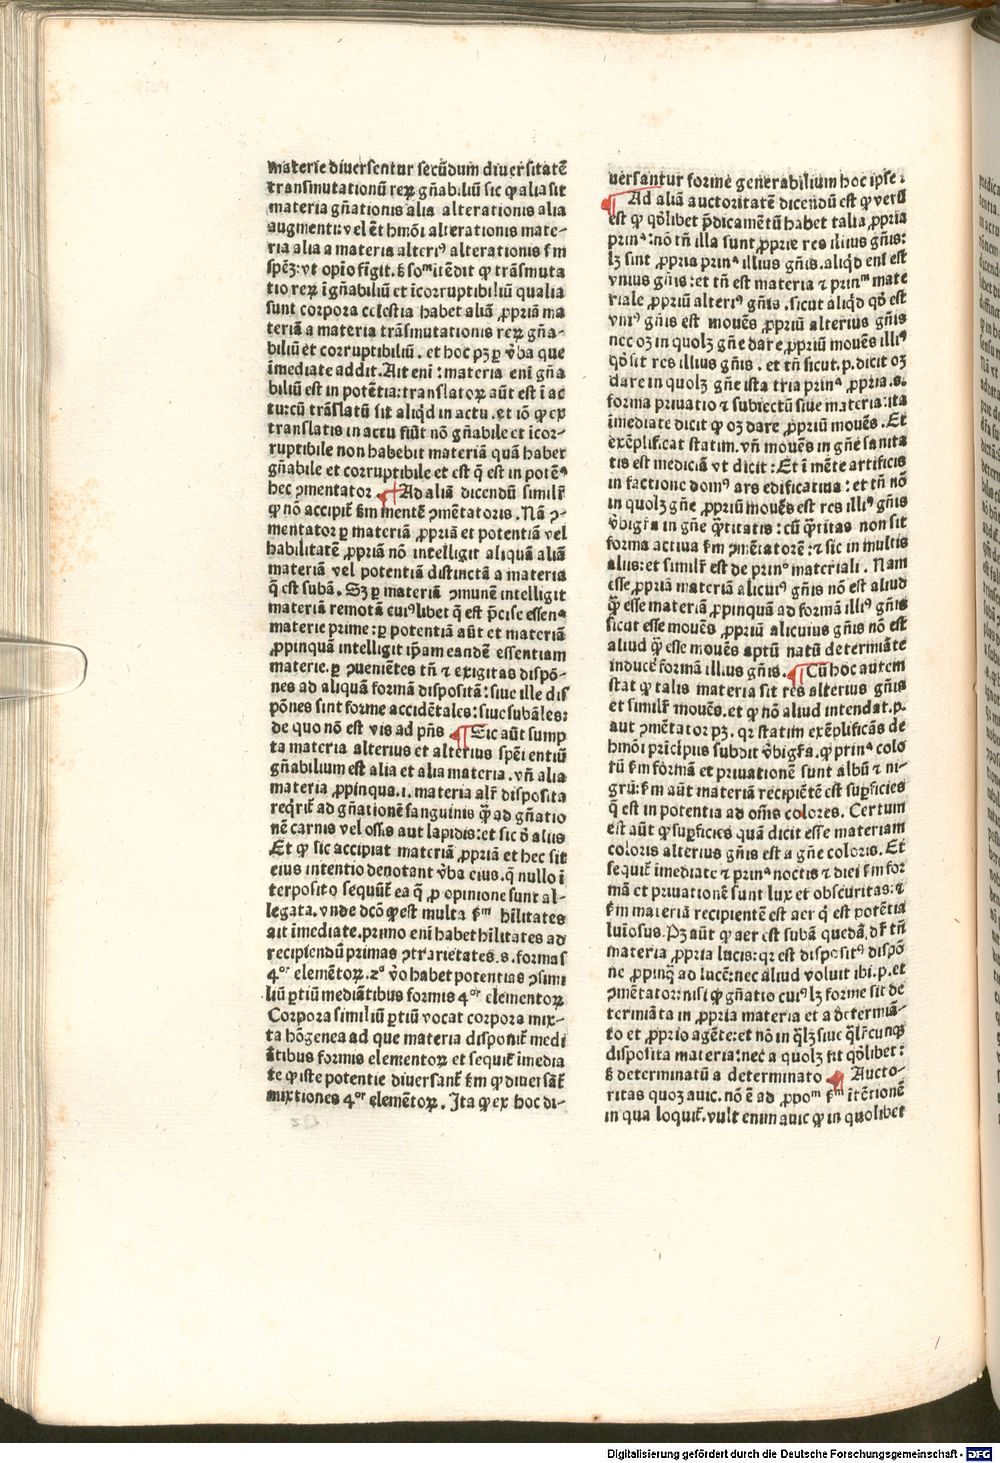 materie diuersentur secūdum diuersitatē
transmutationū reꝝ gn̄abiliū sic ꝙ alia sit
materia gn̄ationis alia alterationis alia
augmenti: vel ēt hmōi alterationis mate-
ria alia a materia alteriꝰ alterationis ẜm
spēꝫ: vt opīo fīgit. ꝫ soᵐ ītēdit ꝙ trāsmuta
tio reꝝ īgn̄abiliū et īcorruptibiliū qualia
sunt corpora celestia habet aliā ꝓpriā ma
teriā a materia trāsmutationis reꝝ gn̄a-
biliū et corruptibiliū. et hoc pꝫ ꝑ v̄ba que
īmediate addit. Ait enī: materia enī gn̄a
biliū est in potētia: translatoꝝ aūt est ī ac
tu: cū trāslatū sit aliqͥd in actu. et iō ꝙ ex
translatis in actu fiūt nō gn̄abile et īcor-
ruptibile non habebit materiā quā habet
gn̄abile et corruptibile et est q̄ est in potēᵃ
hec ꝯmentatoꝛ ¶ Ad aliā dicendū similr̄
ꝙ nō accipit̄ ẜm mentē ꝯmētatoris. Nā ꝯ-
mentatoꝛ ꝑ materiā ꝓpriā et potentiā vel
habilitatē ꝓpriā nō intelligit aliquā aliā
materiā vel potentiā distinctā a materia
q̄ est subā. Sꝫ ꝑ materiā ꝯmunē intelligit
materiā remotā cuiꝰlibet q̄ est p̄cise essenᵃ
materie prime: ꝑ potentiā aūt et materiā
ꝓpinquā intelligit ip̄am eandē essentiam
materie. ꝑ ꝯueniētes tn̄ ⁊ exigitas dispō-
nes ad aliquā formā dispositā: siue ille dis
pōnes sint forme accidētales: siue subāles:
de quo nō est vis ad pn̄s ¶ Sic aūt sump
ta materia alterius et alterius spēi entiū
gn̄abilium est alia et alia materia. vn̄ alia
materia ꝓpinqua. i. materia alr̄ disposita
reqͥrit̄ ad gn̄ationē sanguinis qͣꝫ ad gn̄atio
nē carnis vel ossis aut lapidis: et sic ō aliis
Et ꝙ sic accipiat materiā ꝓpriā et hec sit
eius intentio denotant v̄ba eius. q̄ nullo ī
terposito sequūt̄ ea q̄ ꝓ opinione sunt al-
legata. vnde dcō ꝙ est multa ẜᵐ hīlitates
ait īmediate. primo enī habet hīlitates ad
recipiendū primas ꝯtrarietates. s. formas
4ᵒʳ elemētoꝝ. 2ᵒ v̄o habet potentias ꝯsimi
liū ꝑtiū mediātibus formis 4ᵒʳ elementoꝝ
Corpora similiū ꝑtiū vocat corpora mix-
ta hōgenea ad que materia disponit̄ medi
ātibus formis elementoꝝ et sequit̄ īmedia
te ꝙ iste potentie diuersant̄ ẜm ꝙ diuersāt̄
mixtiones 4ᵒʳ elemētoꝝ. Ita ꝙ ex hoc di-
uersantur forme generabilium hoc ipse:
¶ Ad aliā auctoritatē dicendū est ꝙ verū
est ꝙ qͦdlibet p̄dicamētū habet talia ꝓpria
prinᵃ: nō tn̄ illa sunt ꝓprie res illius gn̄is:
lꝫ sint ꝓpria prinᵃ illius gn̄is. aliqͥd enī est
vnius gn̄is: et tn̄ est materia ⁊ prinᵐ mate
riale ꝓpriū alteriꝰ gn̄is. sicut aliqͥd qͦd est
vniꝰ gn̄is est mouēs ꝓpriū alterius gn̄is
nec oꝫ in quolꝫ gn̄e dare ꝓpriū mouēs illiꝰ
qͦd sit res illius gn̄is. et tn̄ sicut. p. dicit oꝫ
dare in quolꝫ gn̄e ista tria prinᵃ ꝓpria. s.
forma priuatio ⁊ subiectū siue materia: ita
īmediate dicit ꝙ oꝫ dare ꝓpriū mouēs. Et
exēplificat statim. vn̄ mouēs in gn̄e sanita
tis est mediciā vt dicit: Et ī mēte artificis
in factione domꝰ ars edificatiua: et tn̄ nō
in quolꝫ gn̄e ꝓpriū mouēs est res illiꝰ gn̄is
v̄bigr̄a in gn̄e qͣ̄titatis: cū qͣ̄titas non sit
forma actiua ẜm ꝯmētatorē: ⁊ sic in multis
aliis: et similr̄ est de prinᵒ materiali. Nam
esse ꝓpriā materiā alicuiꝰ gn̄is nō est aliud
qͣꝫ esse materiā ꝓpinquā ad formā illiꝰ gn̄is
sicut esse mouēs ꝓpriū alicuius gn̄is nō est
aliud qͣꝫ esse mouēs aptū natū determiāte
inducēˀ formā illius gn̄is. ¶ Cū hoc autem
stat ꝙ talis materia sit res alterius gn̄is
et similr̄ mouēs. et ꝙ nō aliud intendat. p.
aut ꝯmētator pꝫ. qꝛ statim exēplificās de
hmōi prīcipiis subdit v̄bigr̄a. ꝙ prinᵃ colo
rū ẜm formā et priuationē sunt albū ⁊ ni-
grū: ẜm aūt materiā recipiētē est suꝑficies
q̄ est in potentia ad om̄s colores. Certum
est aūt ꝙ suꝑficies quā dicit esse materiam
coloris alterius gn̄is est a gn̄e coloris. Et
sequit̄ īmediate ⁊ prinᵃ noctis ⁊ diei ẜm for
mā et priuationē sunt lux et obscuritas: ⁊
ẜm materiā recipientē est aer qͥ est potētia
lūiosus. Pꝫ aūt ꝙ aer est subā quedā. dr̄ tn̄
materia ꝓpria lucis: qꝛ est dispositꝰ dispō
ne ꝓpinqͣ ad lucē: nec aliud voluit ibi. p. et
ꝯmētator: nisi ꝙ gn̄atio cuiꝰlꝫ forme sit de
termiāta in ꝓpria materia et a determiā-
to et ꝓprio agēte: et nō in qͣlꝫ siue qͣlr̄cunqꝫ
disposita materia: nec a quolꝫ fit qͦdlibet:
ꝫ determinatū a determinato ¶ Aucto-
ritas quoꝫ auic. nō ē ad ꝓpoᵐ ẜᵐ ītētionē
in qua loquit̄. vult enim auic ꝙ in quolibet
Digitalisierung gefördert durch die Deutsche Forschungsgemeinschaft - DFG